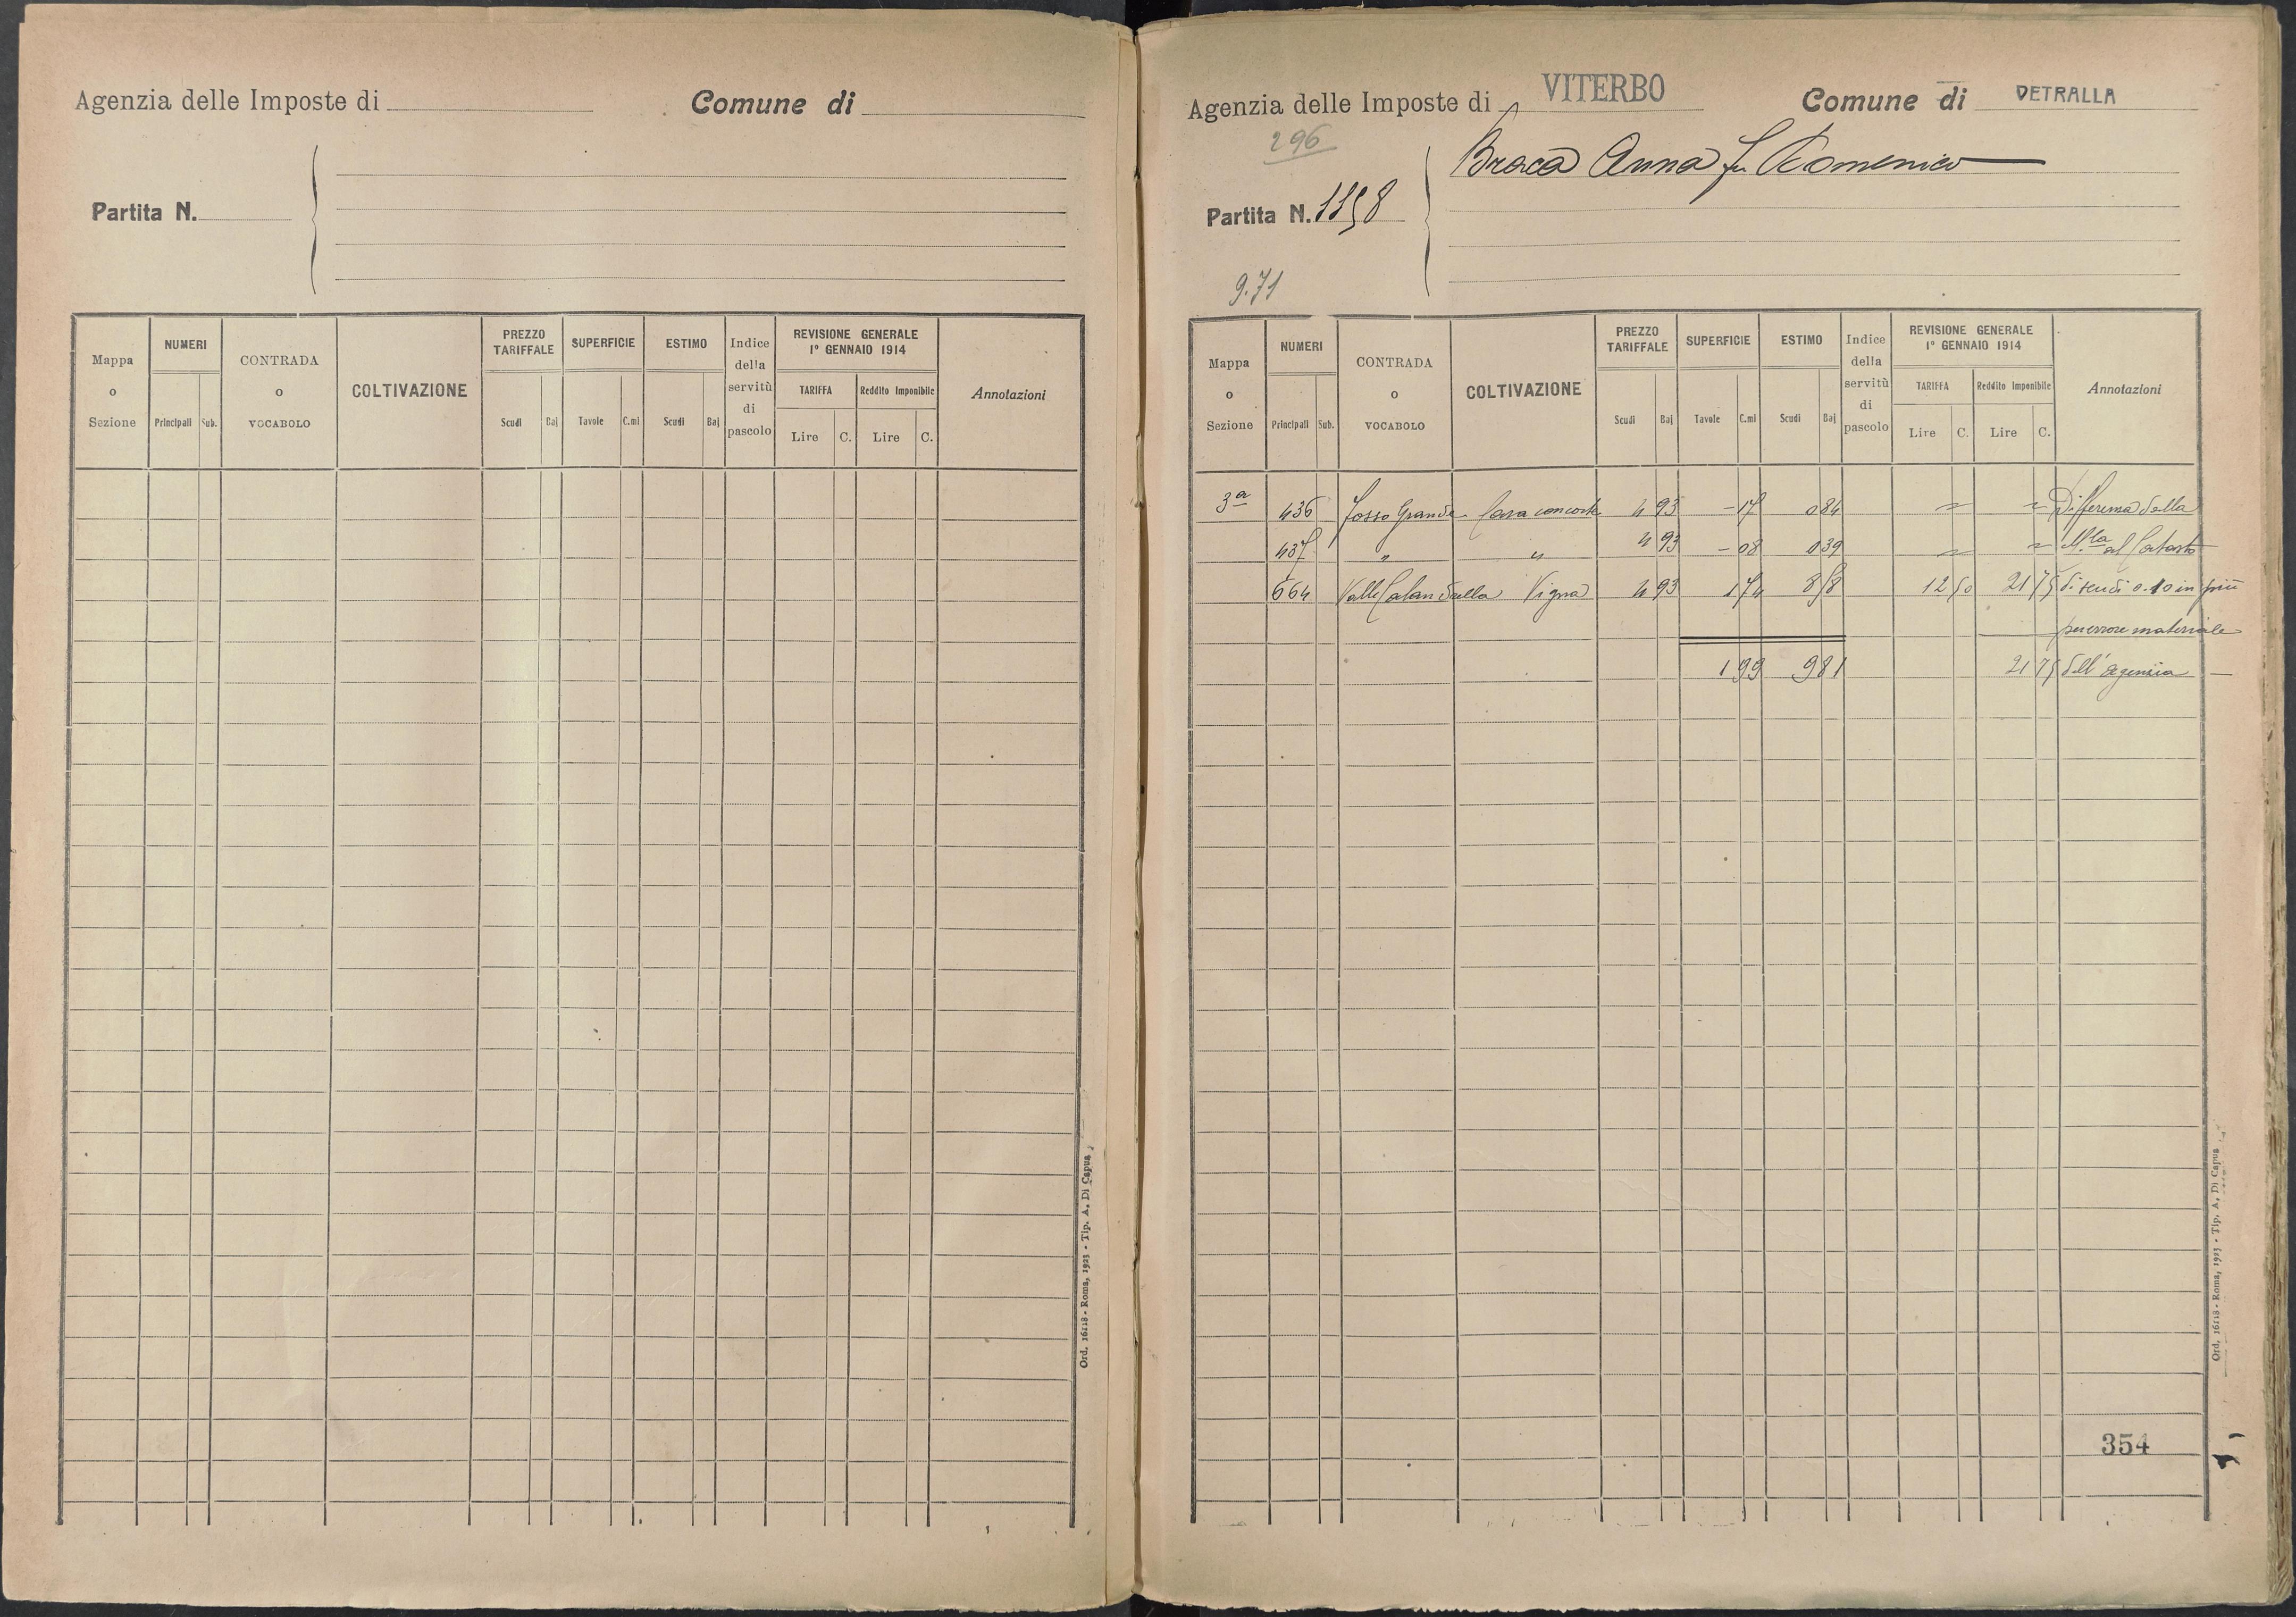 Agenzia delle Imposte di
Comune di
Partita N.
Mappa o Sezione | NUMERI Principali Sub. | CONTRADA o VOCABOLO | COLTIVAZIONE | PREZZO TARIFFALE Scudi Baj | SUPERFICIE Tavole C.mi | ESTIMO Scudi Baj | Indice della servitù di pascolo | REVISIONE GENERALE 1° GENNAIO 1914 TARIFFA Lire C. Reddito Imponibile Lire C. | Annotazioni
Ord. 16118 - Roma, 1923 - Tip. A. Di Capua
Agenzia delle Imposte di VITERBO
Comune di VETRALLA
296
Braca Anna fu Domenico
Partita N. 1158
9.71
Mappa o Sezione | NUMERI Principali Sub. | CONTRADA o VOCABOLO | COLTIVAZIONE | PREZZO TARIFFALE Scudi Baj | SUPERFICIE Tavole C.mi | ESTIMO Scudi Baj | Indice della servitù di pascolo | REVISIONE GENERALE 1° GENNAIO 1914 TARIFFA Lire C. Reddito Imponibile Lire C. | Annotazioni
3a 436 Fosso Grande Casa con corte 4 93 - 17 0 84 " " Differenza dalla
437 " " 4 93 - 08 0 39 " " M.la al Catasto
664 Valle Calandrella Vigna 4 93 1 74 8 58 12 50 21 75 di scudi 0.10 in più
per errore materiale
1 99 9 81 21 75 dell'Agenzia —
354
Ord. 16118 - Roma, 1923 - Tip. A. Di Capua